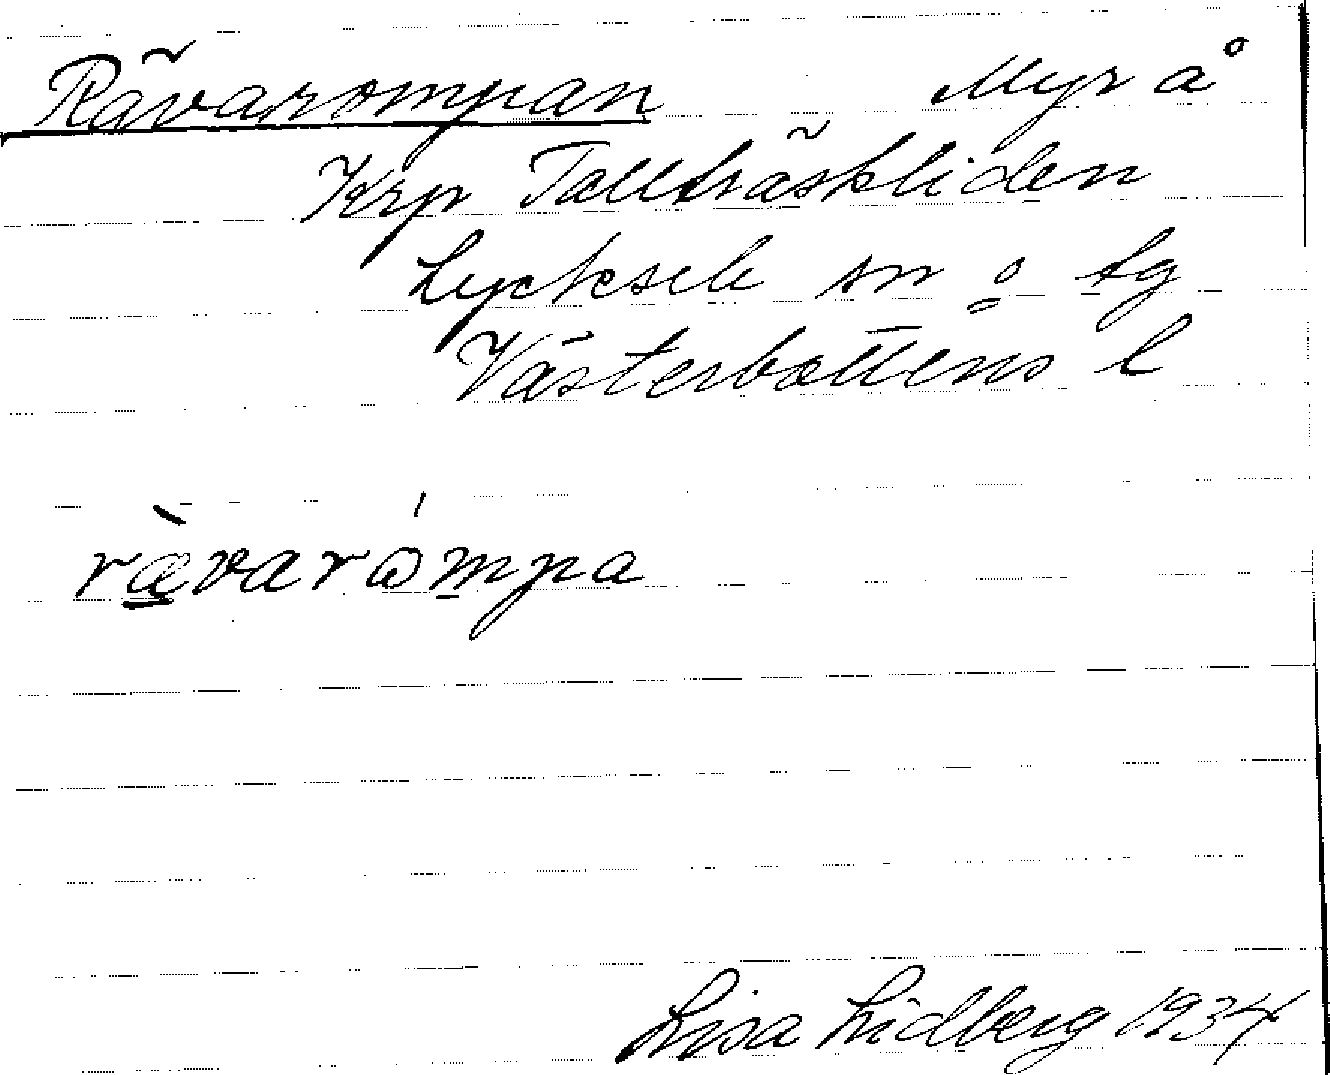 Rävarompan Myr å
Krp Tallträskliden
Lycksele sn o tg
Västerbottens l
rævarɷmpa
Lisa Lidberg 1934